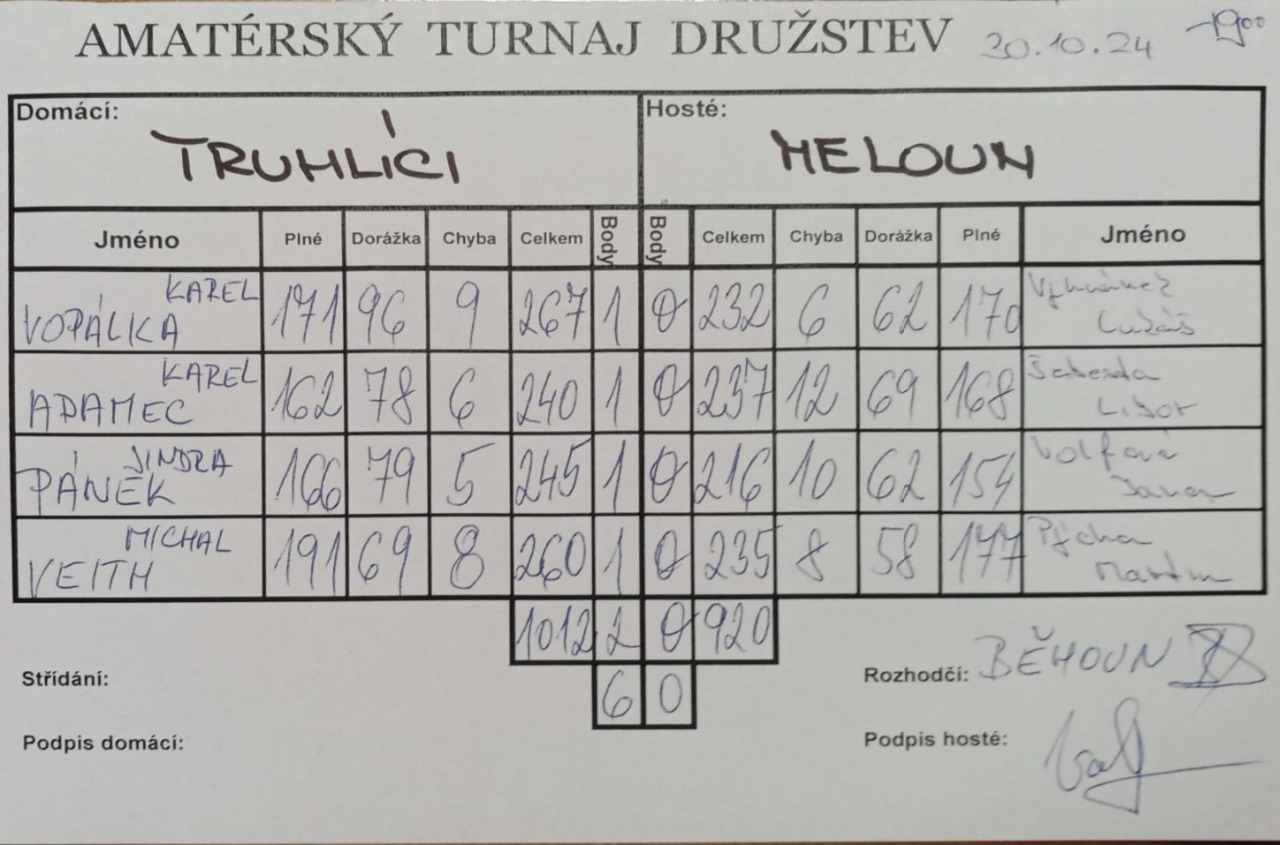 AMATÉRSKÝ TURNAJ DRUŽSTEV 30.10.24 -19⁰⁰
Domácí: Hosté:
TRUHLÍCI MELOUN
Jméno Plné Dorážka Chyba Celkem Body Body Celkem Chyba Dorážka Plné Jméno
KAREL
VOPÁLKA 171 96 9 267 1 0 232 6 62 170 Lukáš
KAREL
ADAMEC 162 78 6 240 1 0 237 12 69 168 Libor
JINDRA Volfová
PÁNEK 166 79 5 245 1 0 216 10 62 154 Jana
MICHAL Pýcha
VEITH 191 69 8 260 1 0 235 8 58 177 Martin
1012 2 0 920
Střídání: 6 0 Rozhodčí: BĚHOUN
Podpis domácí: Podpis hosté: